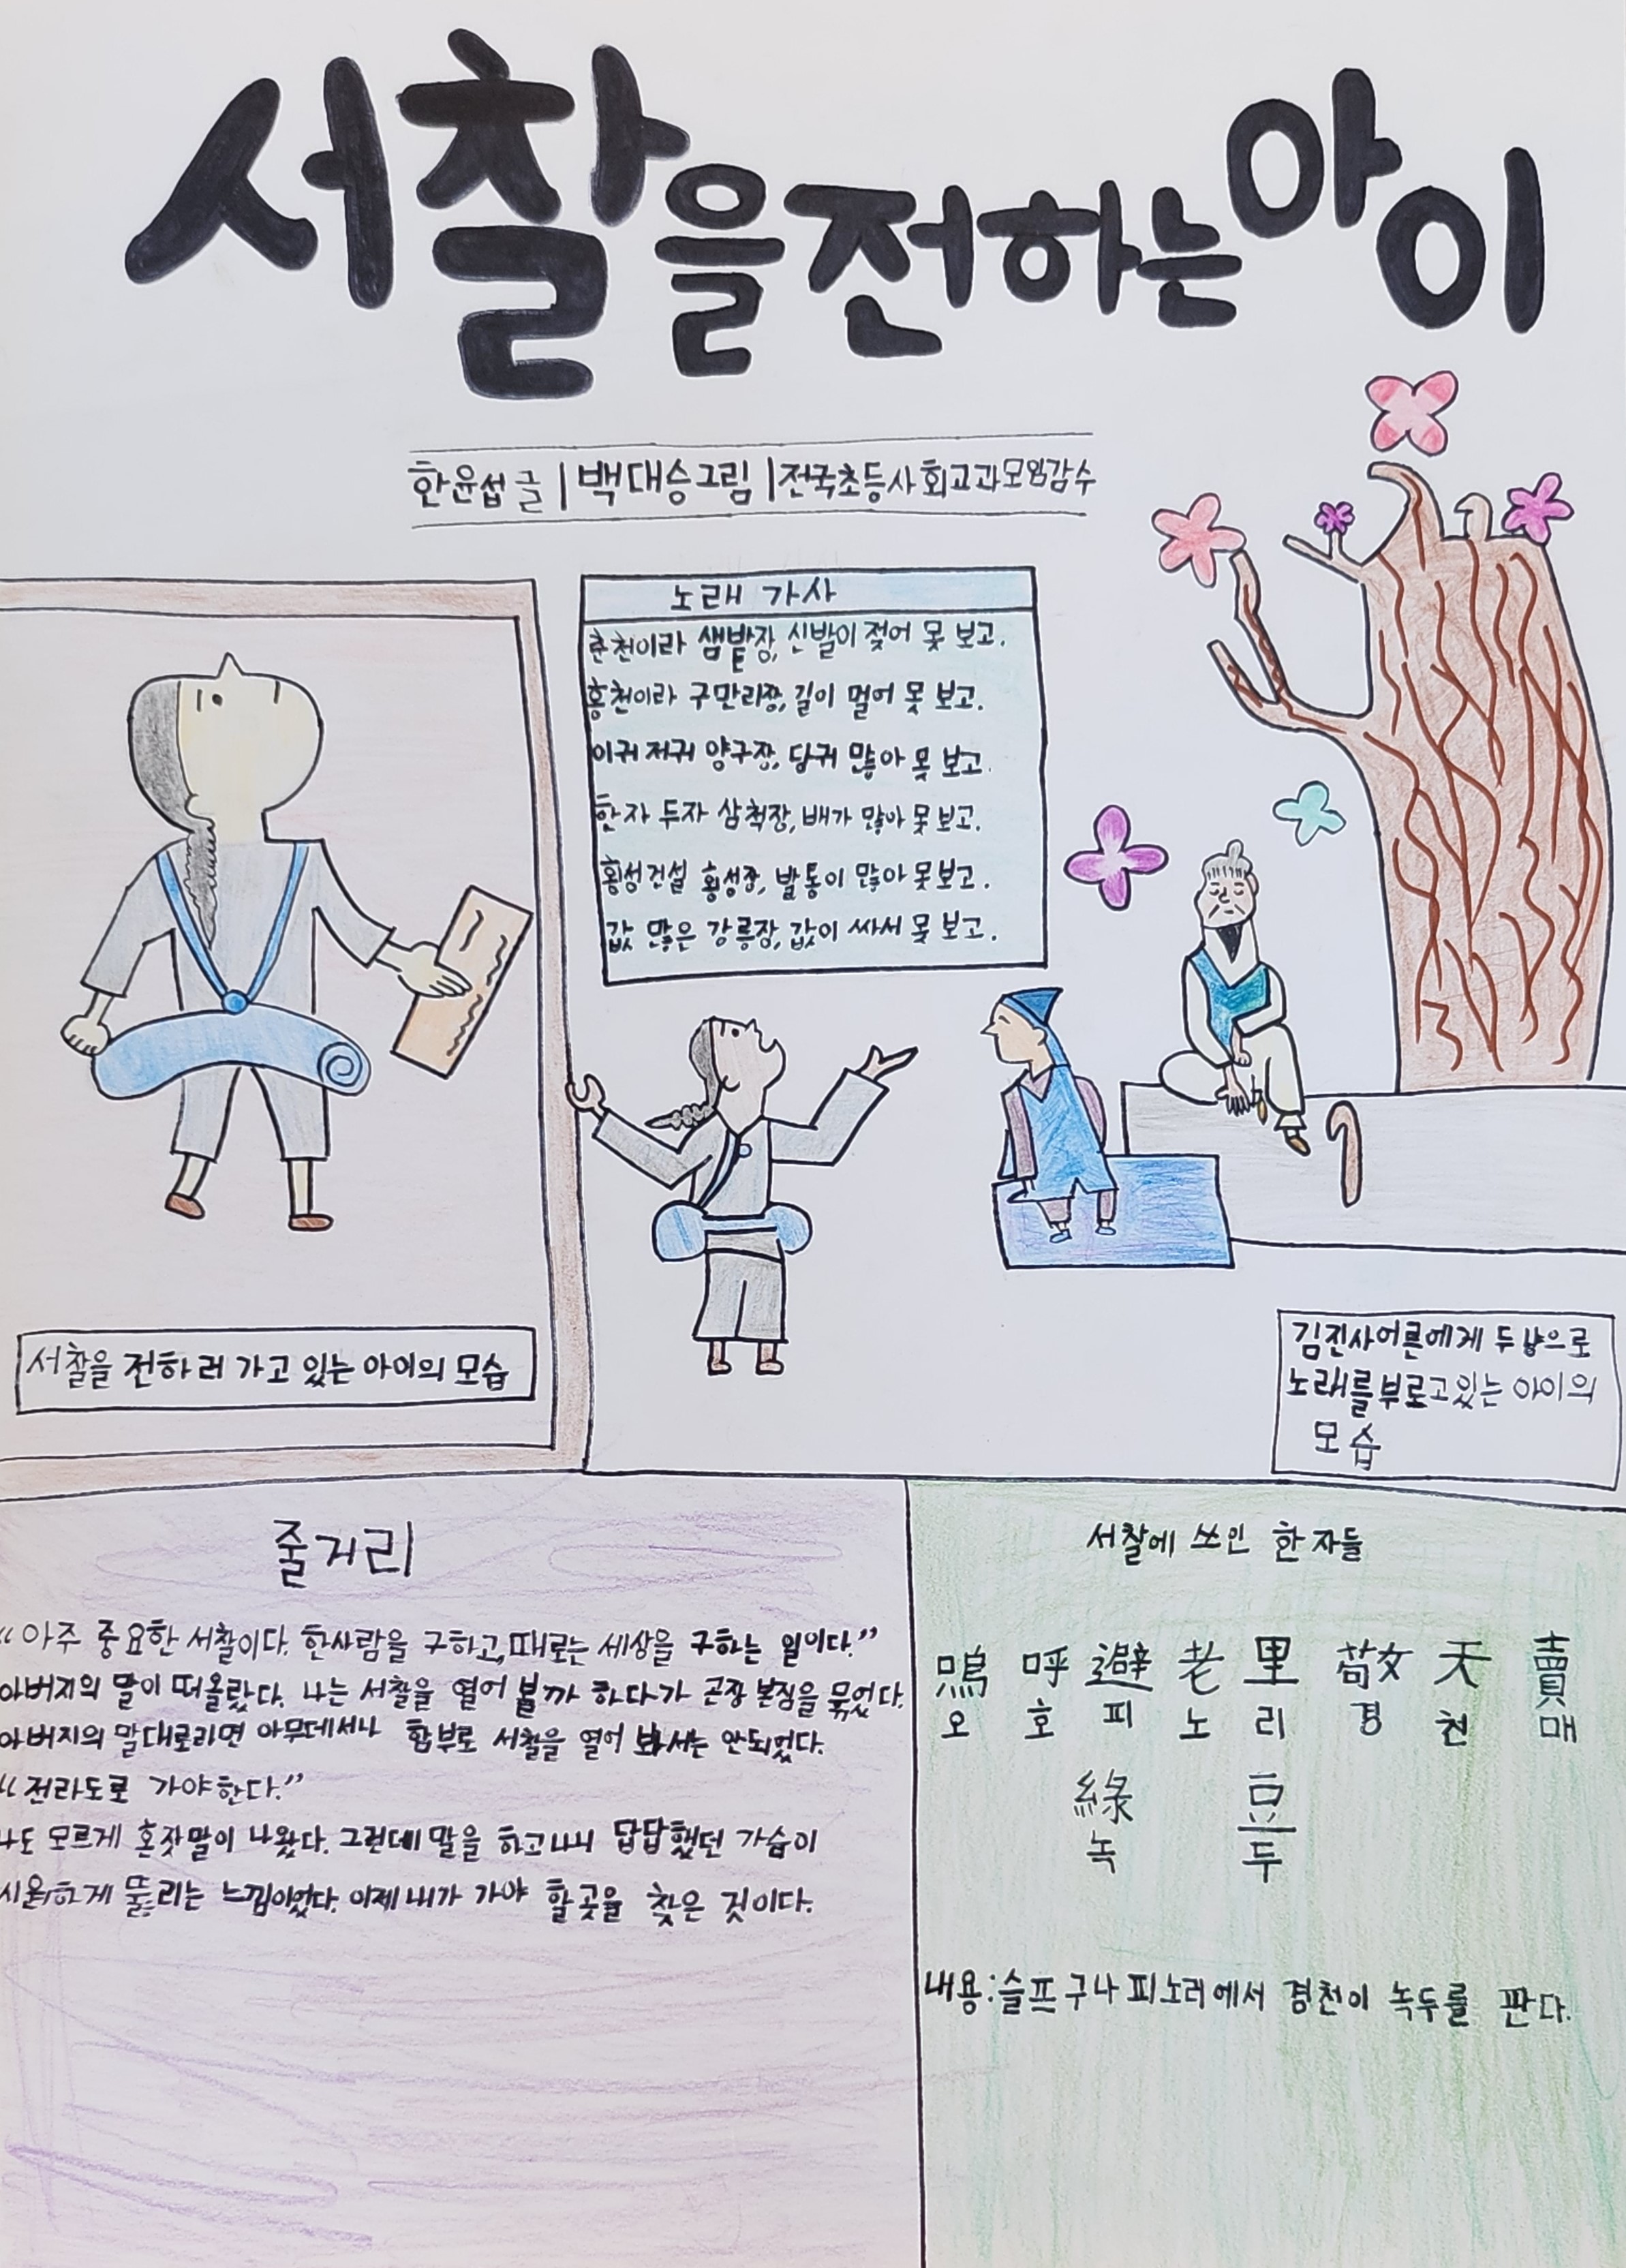 서찰을전하는아이
한윤섭 글 | 백대승그림 | 전국초등사회교과모임감수
노래 가사
춘천이라 샘밭장, 신발이 젖어 못 보고.
홍천이라 구만리장, 길이 멀어 못 보고.
이귀 저귀 양구장, 당귀 많아 못 보고.
한자 두자 삼척장, 배가 많아 못 보고.
횡성건설 횡성장, 발통이 많아 못 보고.
값 많은 강릉장, 값이 싸서 못 보고.
서찰을 전하러 가고 있는 아이의 모습
김진사어른에게 두 냥으로
노래를 부로고있는 아이의
모습
줄거리
"아주 중요한 서찰이다. 한사람을 구하고, 때로는 세상을 구하는 일이다."
아버지의 말이 떠올랐다. 나는 서찰을 열어 볼까 하다가 곧장 봇짐을 묶었다.
아버지의 말대로라면 아무데서나 함부로 서찰을 열어 봐서는 안되었다.
"전라도로 가야한다."
나도 모르게 혼잣말이 나왔다. 그런데 말을 하고나니 답답했던 가슴이
시원하게 뚫리는 느낌이었다. 이제 내가 가야 할 곳을 찾은 것이다.
서찰에 쓰인 한자들
嗚 呼 避 老 里 敬 天 賣
오 호 피 노 리 경 천 매
綠 豆
녹 두
내용: 슬프구나 피노리에서 경천이 녹두를 판다.